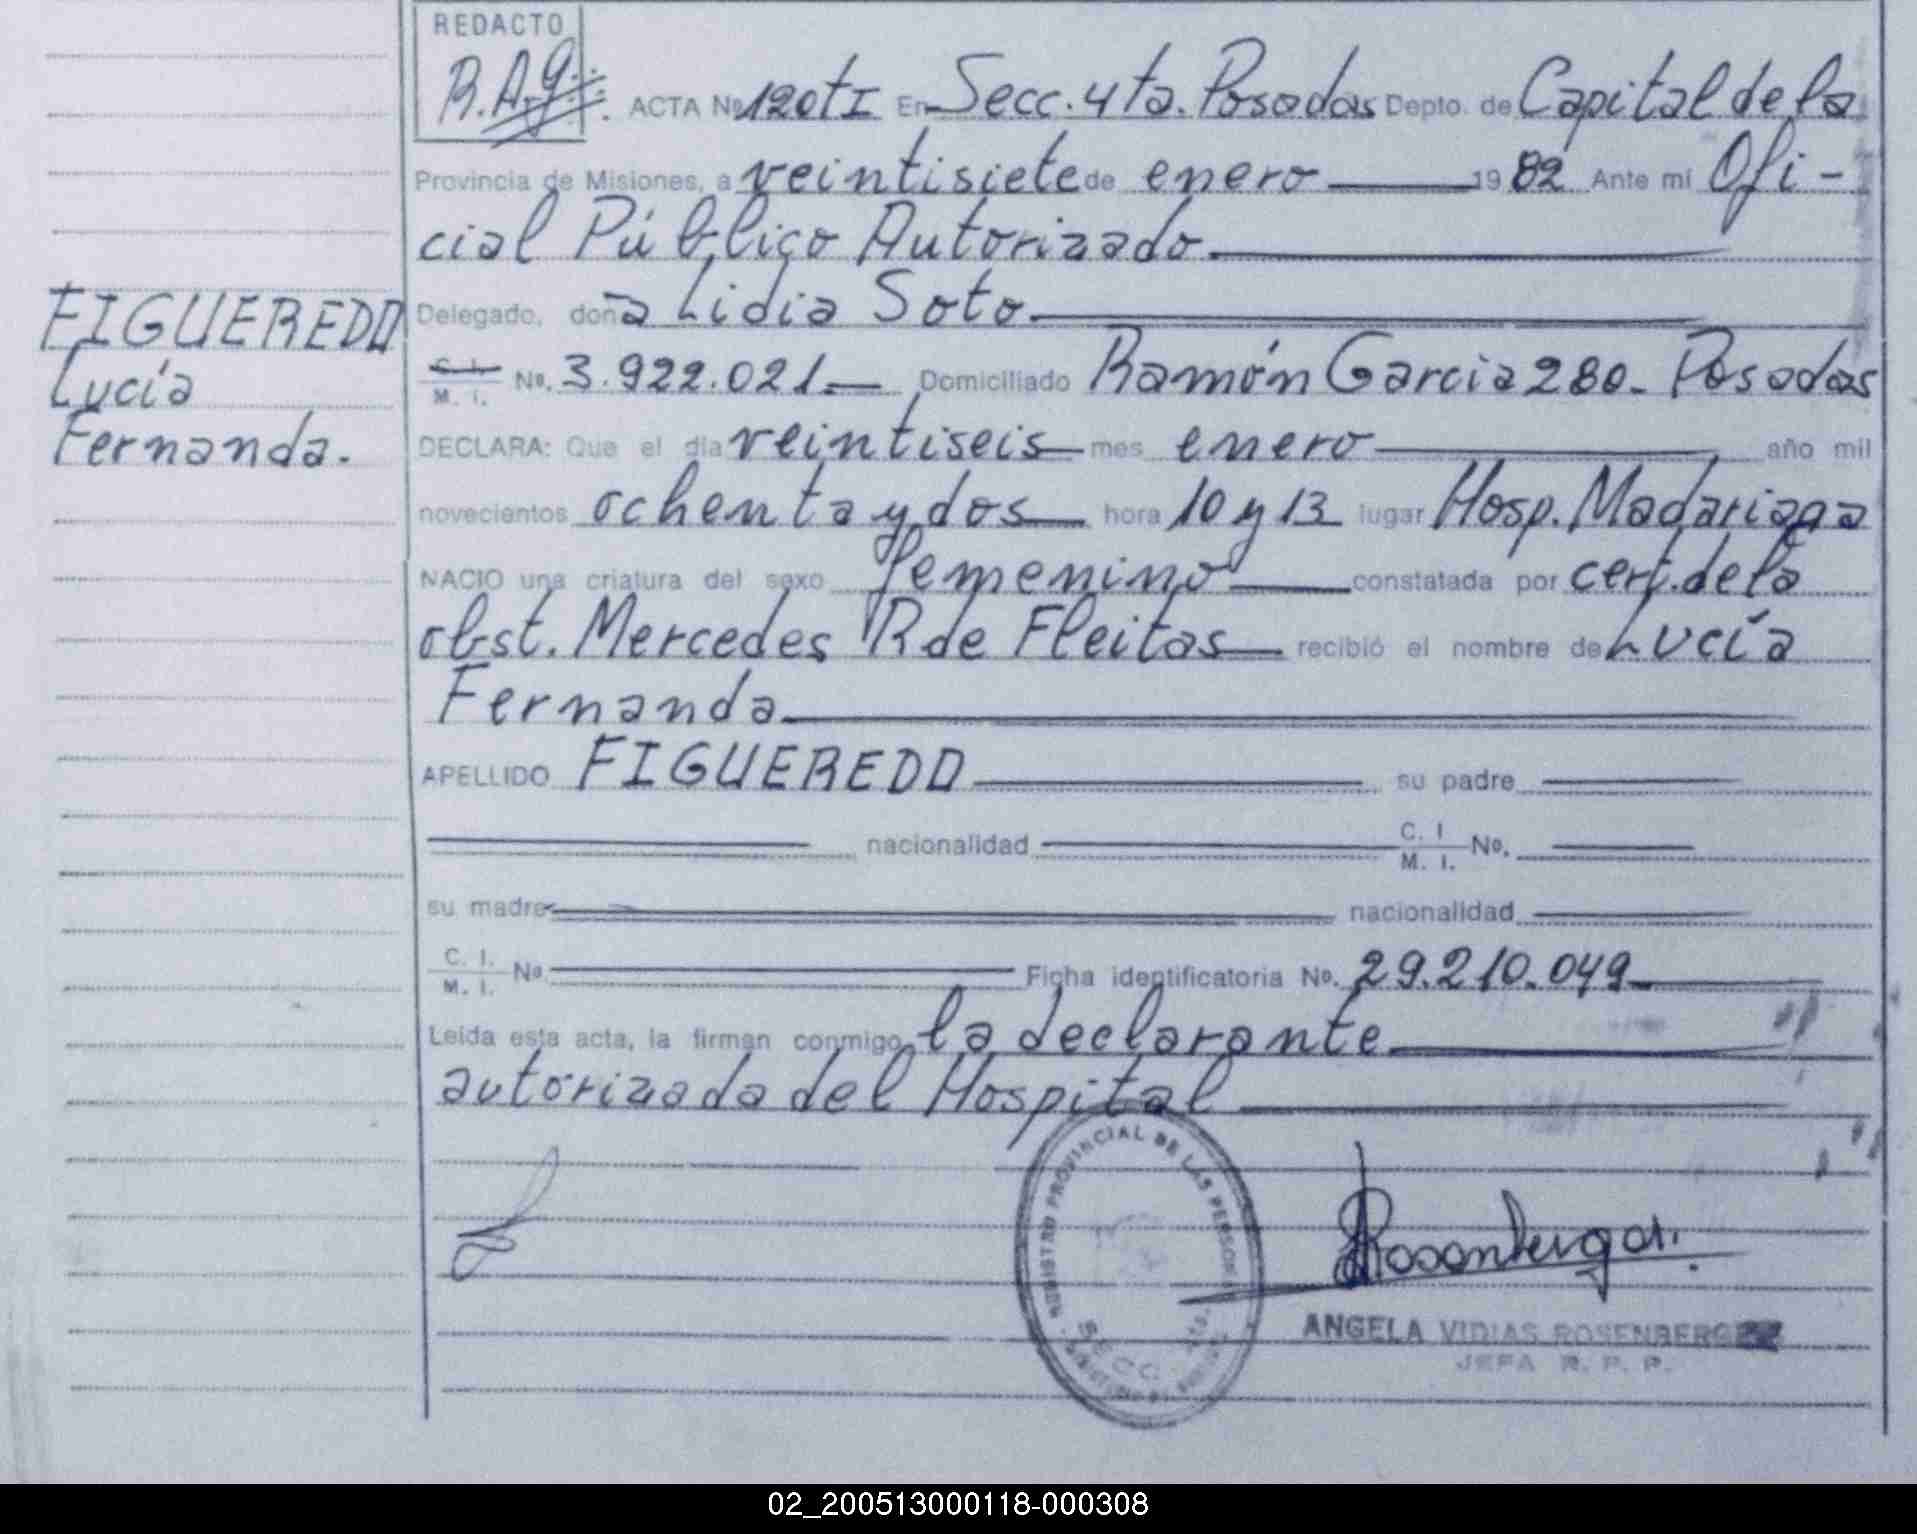 REDACTO
R.A.G.
ACTA Nº 120 t I En Secc. 4ta. Posadas Depto. de Capital de la
Provincia de Misiones, a veintisiete de enero 1982 Ante mi Ofi-
cial Público Autorizado.
Delegado, doña Lidia Soto.
C. I.
M. I. Nº. 3.922.021 Domiciliado Ramón Garcia 280. Posadas
DECLARA: Que el dia veintiseis mes enero año mil
novecientos ochenta y dos hora 10 y 13 lugar Hosp. Madariaga
NACIO una criatura del sexo femenino constatada por cert. de la
obst. Mercedes R de Fleitas recibió el nombre de Lucía
Fernanda.
APELLIDO FIGUEREDO su padre
nacionalidad C. I
M. I. Nº.
su madre nacionalidad
C. I.
M. I. Nº Ficha identificatoria Nº. 29.210.049
Leida esta acta, la firman conmigo la declarante
autorizada del Hospital
FIGUEREDO
Lucía
Fernanda.
REGISTRO PROVINCIAL DE LAS PERSONAS
SECC. 4ta.
Rosenberg
ANGELA VIDIAS ROSENBERG
JEFA R. P. P.
02_200513000118-000308